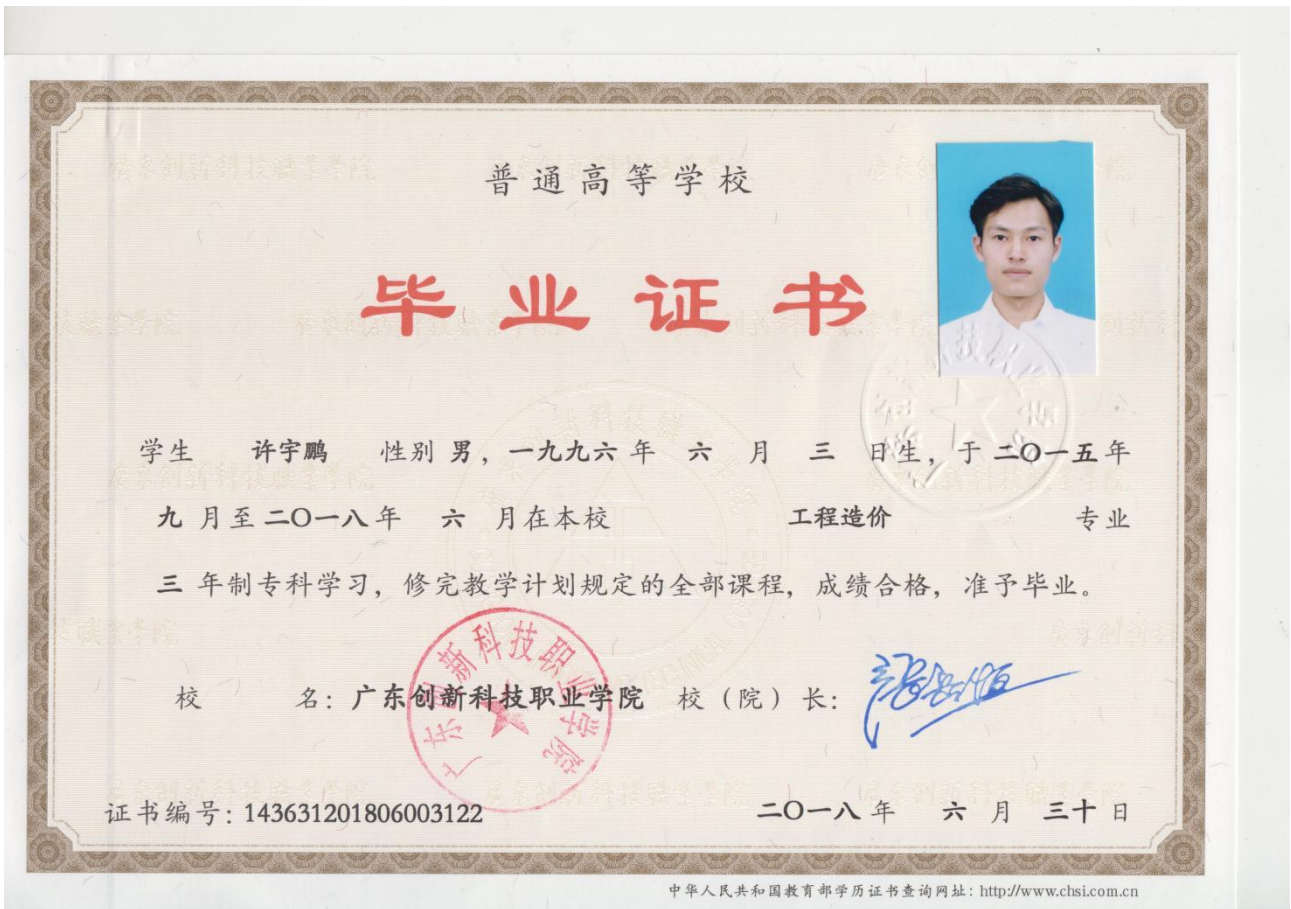 普通高等学校
毕业证书
学生 许宇鹏 性别 男，一九九六年 六 月 三 日生，于二〇一五年
九 月至二〇一八年 六 月在本校 工程造价 专业
三 年制专科学习，修完教学计划规定的全部课程，成绩合格，准予毕业。
校 名：广东创新科技职业学院 校（院）长：
广东创新科技职业学院
证书编号：143631201806003122 二〇一八年 六 月 三十 日
中华人民共和国教育部学历证书查询网址：http://www.chsi.com.cn